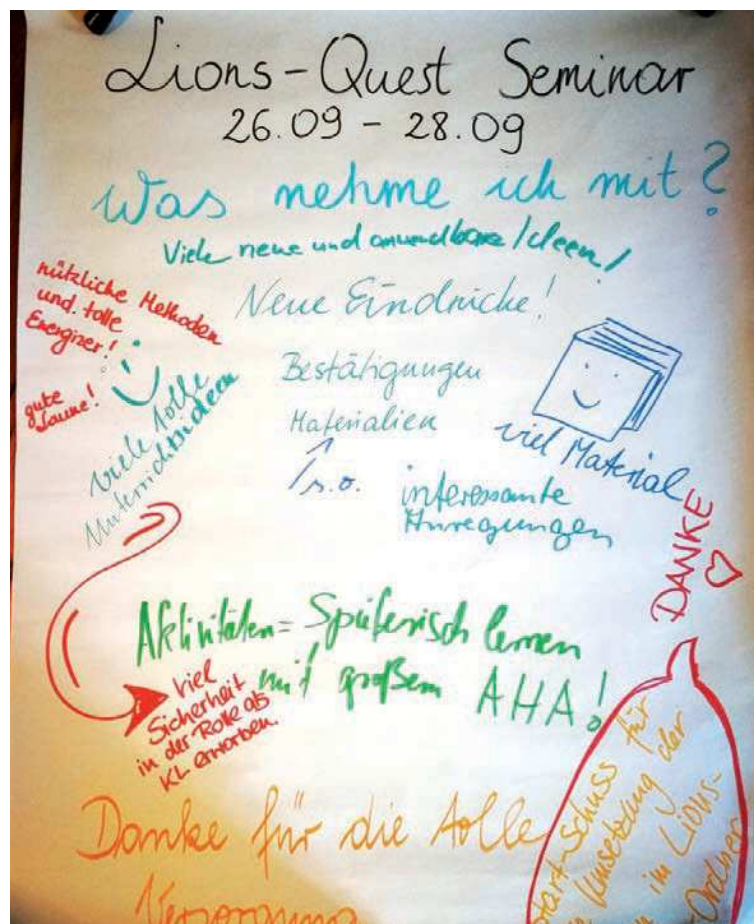 Lions-Quest Seminar
26.09 - 28.09
Was nehme ich mit?
Viele neue und anwendbare Ideen!
nützliche Methoden
und tolle
Energizer!
gute
Laune!
Neue Eindrücke!
Bestätigungen
Materialien
s.o.
viel Material
viele tolle
Unterrichtsideen
interessante
Anregungen
DANKE
Aktivitäten = Spielerisch lernen
mit großem AHA!
viel
Sicherheit
in der Rolle als
KL erworben.
Danke für die tolle
Versorgung
Schuss für
Umsetzung der
im Lions-
Ordner